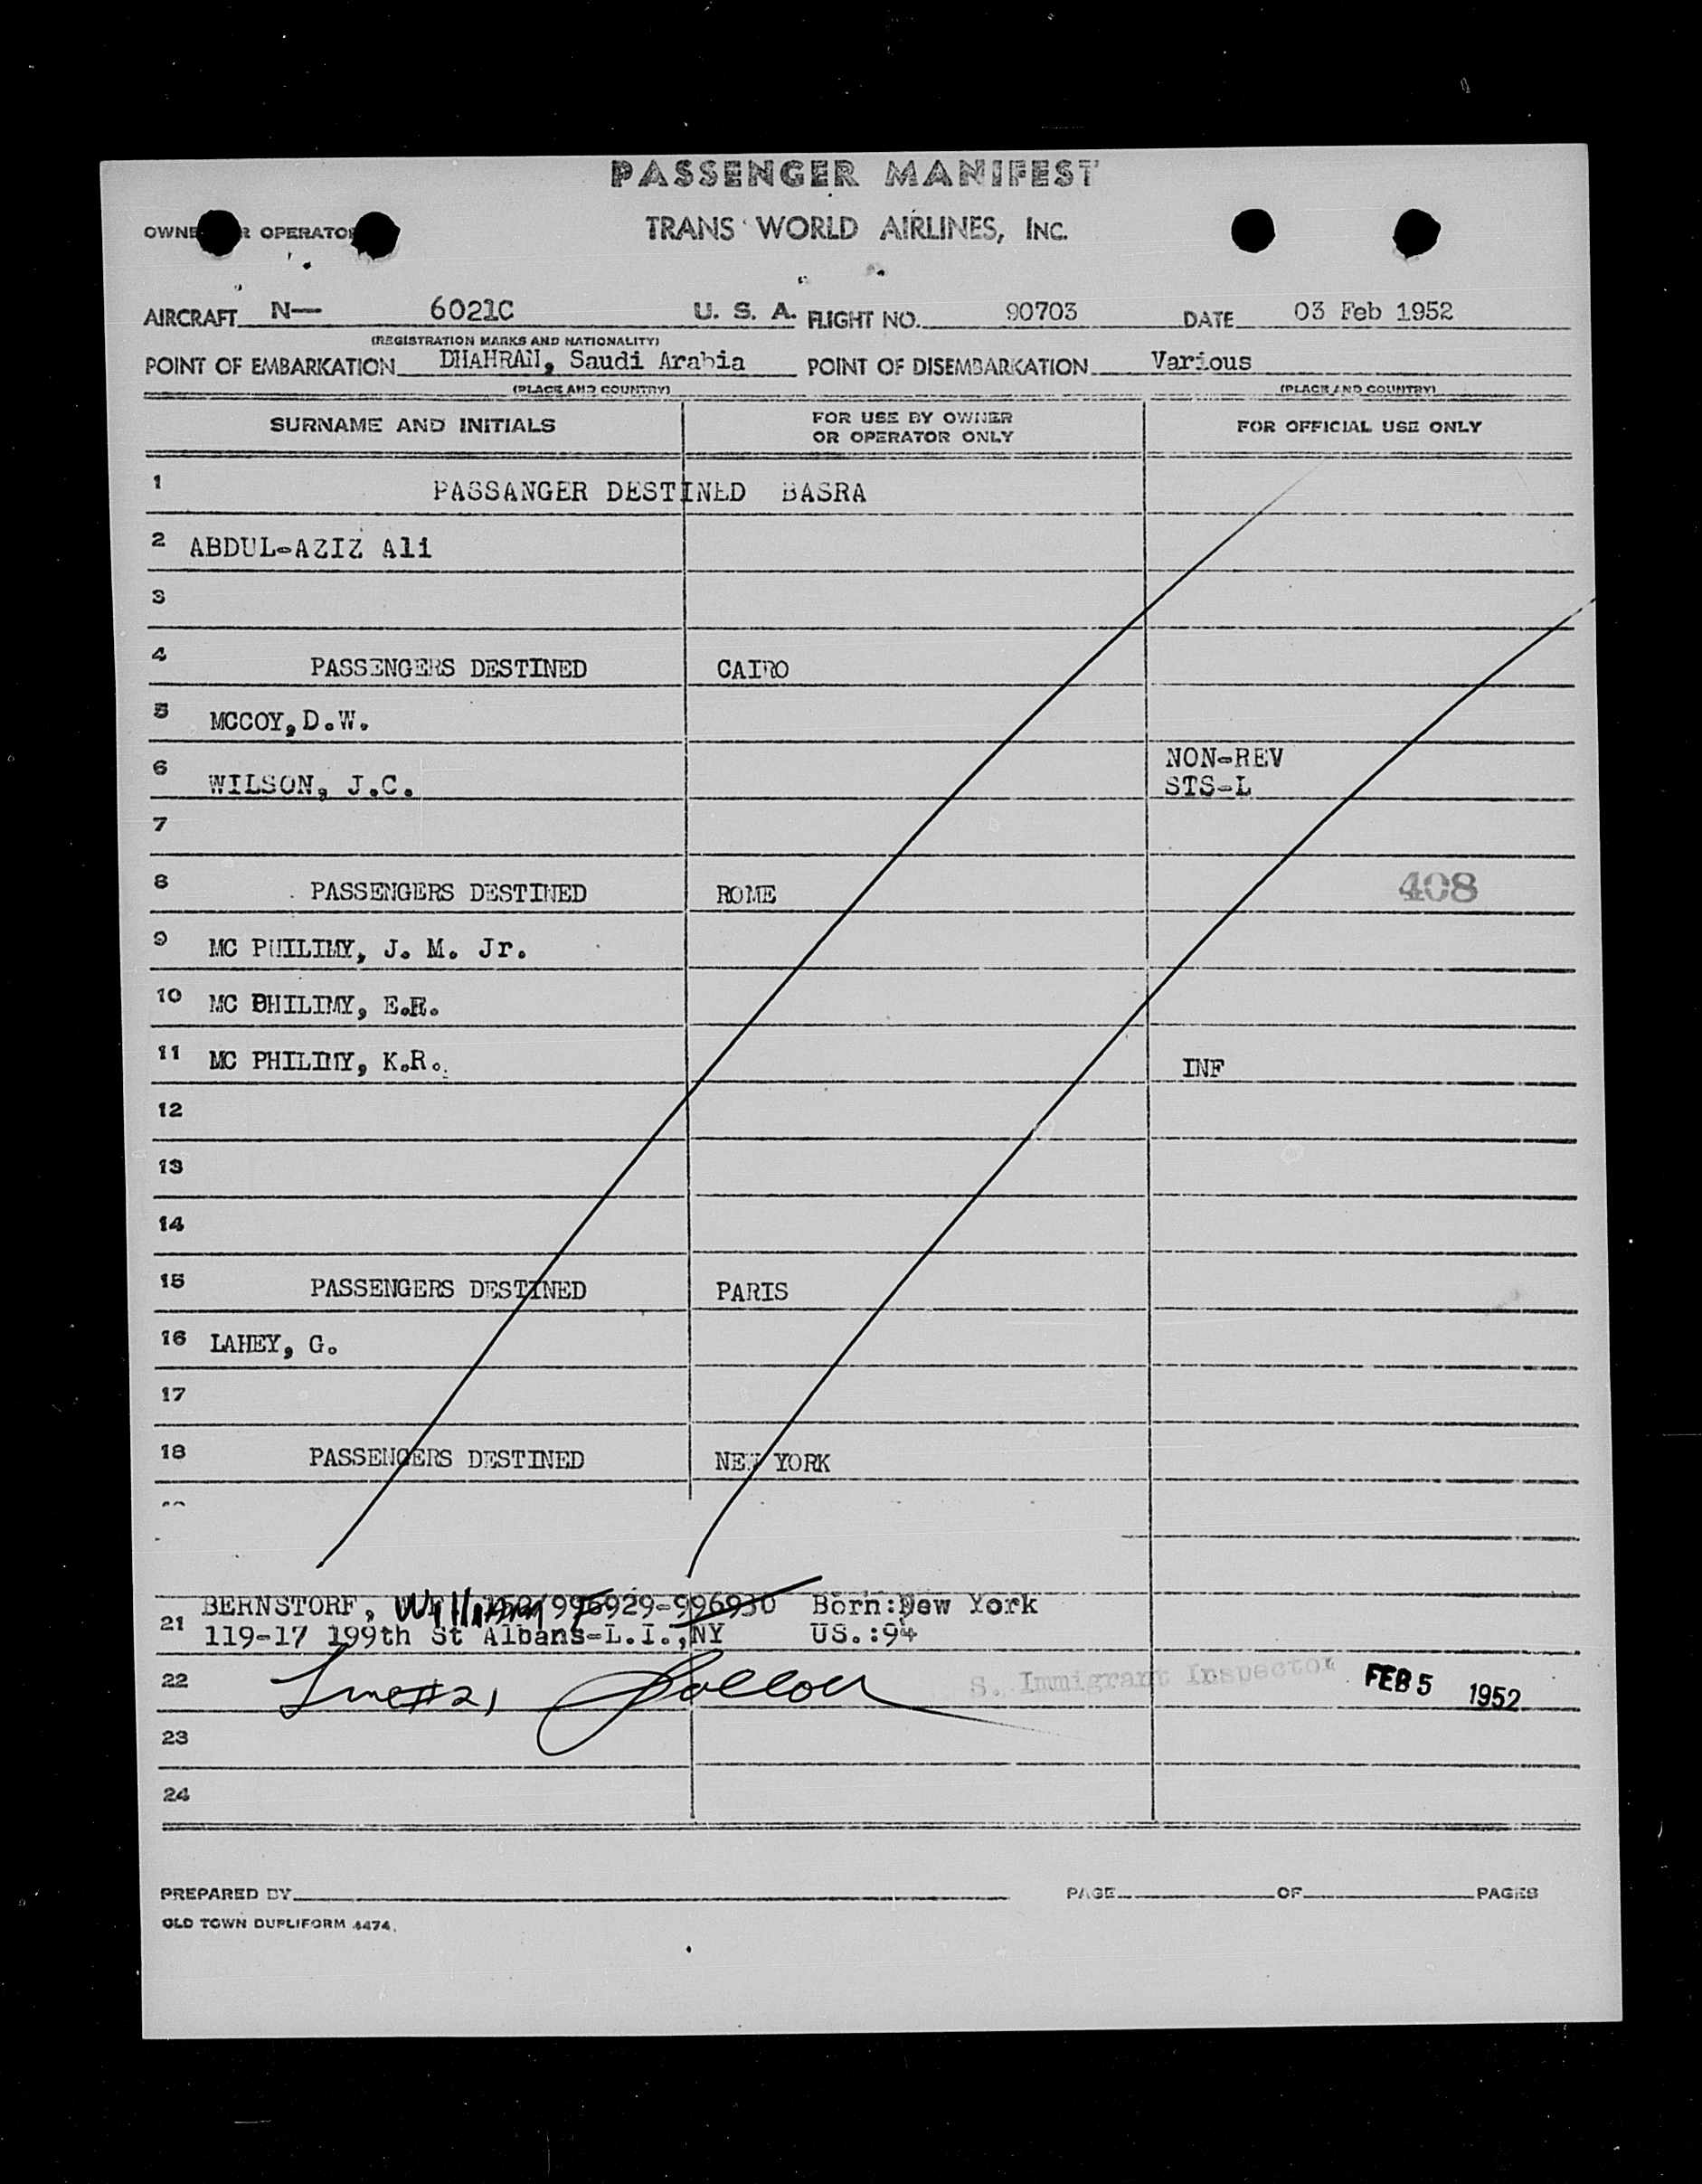 PASSENGER MANIFEST
OWNER OR OPERATOR TRANS WORLD AIRLINES, INC.
AIRCRAFT N— 6021C U. S. A. FLIGHT NO. 90703 DATE 03 Feb 1952
(REGISTRATION MARKS AND NATIONALITY)
POINT OF EMBARKATION DHAHRAN, Saudi Arabia POINT OF DISEMBARKATION Various
(PLACE AND COUNTRY) (PLACE AND COUNTRY)
SURNAME AND INITIALS FOR USE BY OWNER OR OPERATOR ONLY FOR OFFICIAL USE ONLY
1 PASSANGER DESTINED BASRA
2 ABDUL-AZIZ Ali
3
4 PASSENGERS DESTINED CAIRO
5 MCCOY, D.W.
6 WILSON, J.C. NON-REV STS-L
7
8 PASSENGERS DESTINED ROME 408
9 MC PHILIMY, J. M. Jr.
10 MC PHILIMY, E.R.
11 MC PHILIMY, K.R. INF
12
13
14
15 PASSENGERS DESTINED PARIS
16 LAHEY, G.
17
18 PASSENGERS DESTINED NEW YORK
BERNSTORF, William F 996929-996930 Born:New York
21 119-17 199th St Albans-L.I.,NY US.:94
22 Line #21 S. Immigrant Inspector FEB 5 1952
23
24
PREPARED BY PAGE OF PAGES
OLD TOWN DUPLIFORM 4474